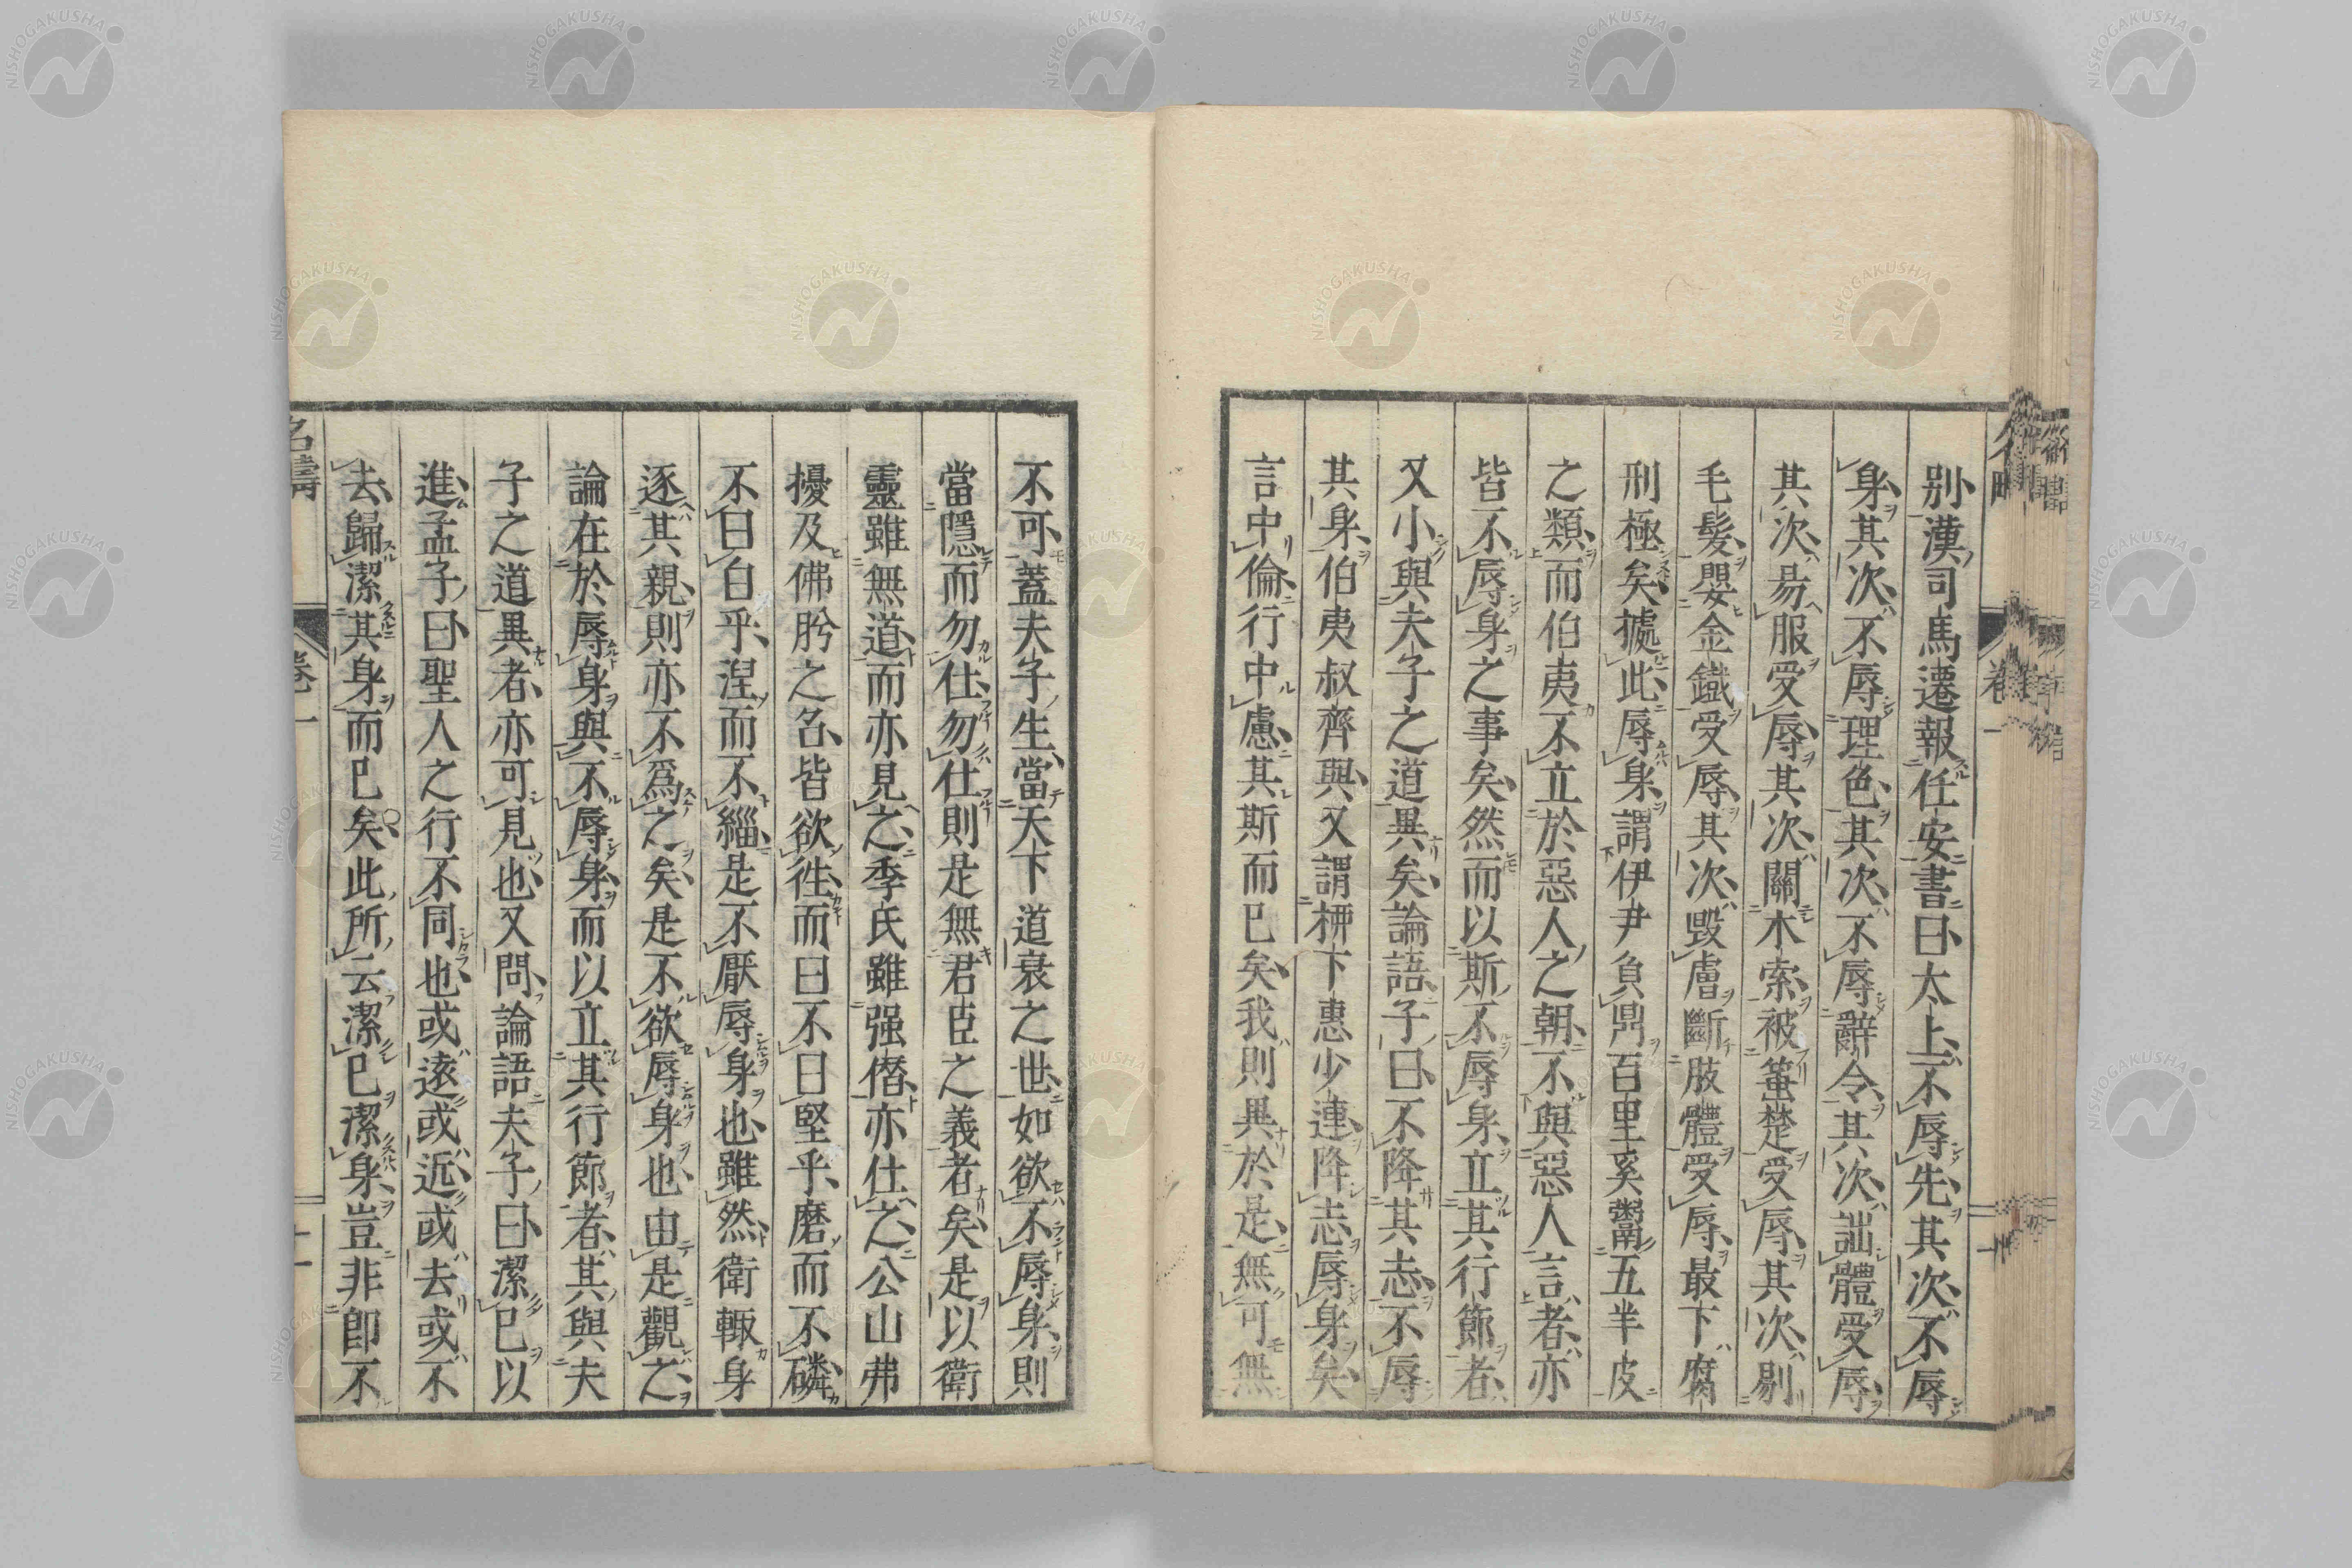 別漢司馬遷報任安書曰太上不辱先其次不辱
身其次不辱理色其次不辱辭令其次詘體受辱
其次易服受辱其次關木索被箠楚受辱其次剔
毛髮嬰金鐵受辱其次毀膚斷肢體受辱最下腐
刑極矣據此辱身謂伊尹負鼎百里奚鬻五羊皮
之類而伯夷不立於惡人之朝不與惡人言者亦
皆不辱身之事矣然而以斯不辱身立其行節者
又小與夫子之道異矣論語子曰不降其志不辱
其身伯夷叔齊與又謂柳下惠少連降志辱身矣
言中倫行中慮其斯而已矣我則異於是無可無
不可蓋夫子生當天下道衰之世如欲不辱身則
當隱而勿仕勿仕則是無君臣之義者矣是以衛
靈雖無道而亦見之季氏雖强僭亦仕之公山弗
擾及佛肸之名皆欲往而曰不曰堅乎磨而不磷
不曰白乎涅而不緇是不厭辱身也雖然衛輒身
逐其親則亦不爲之矣是不欲辱身也由是觀之
論在於辱身與不辱身而以立其行節者其與夫
子之道異者亦可見也又問論語夫子曰潔己以
進孟子曰聖人之行不同也或遠或近或去或不
去歸潔其身而已矣此所云潔己潔身豈非卽不
卷一